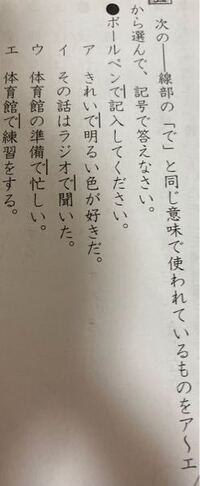 次の――線部の「で」と同じ意味で使われているものをア～エ
から選んで、記号で答えなさい。
●ボールペンで記入してください。
ア　きれいで明るい色が好きだ。
イ　その話はラジオで聞いた。
ウ　体育館の準備で忙しい。
エ　体育館で練習をする。